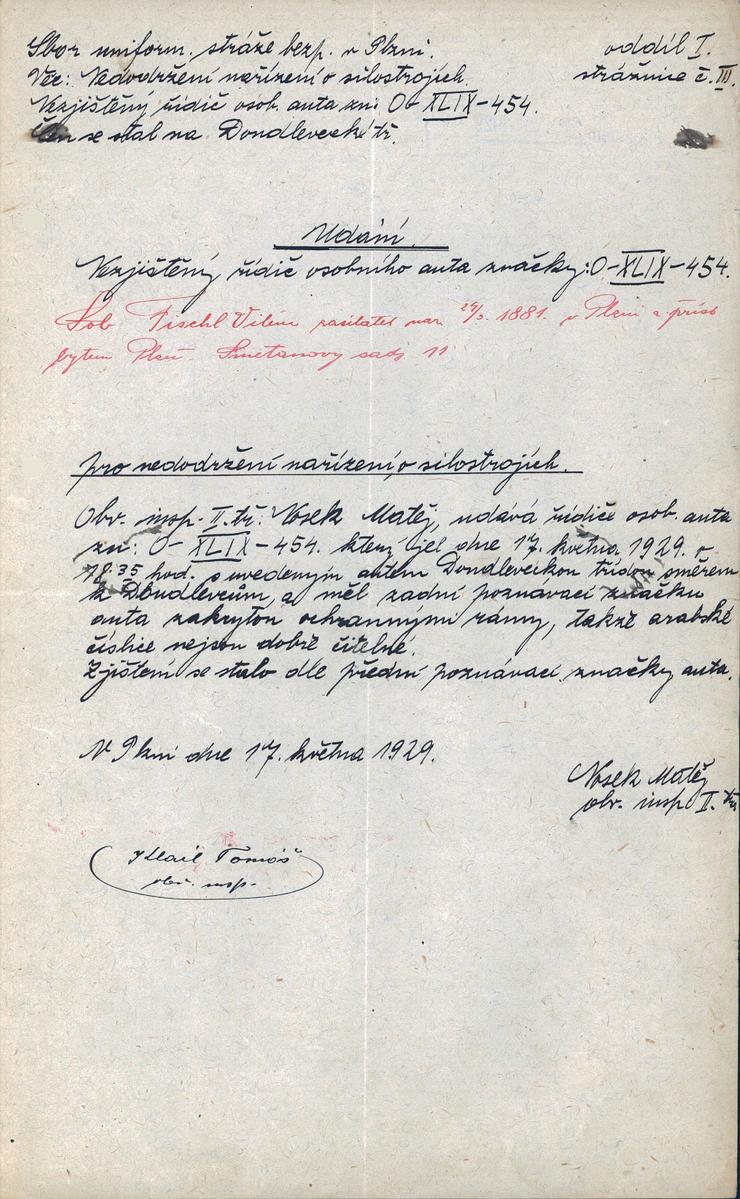 Sbor uniform. stráže bezp. v Plzni.
oddíl I.
strážnice č. III.
Věc: Nedodržení nařízení o silostrojích.
Nezjištěný řidič osob. auta zn: O-XLIX-454.
Čin se stal na Doudlevecké tř.
Udání.
Nezjištěný řidič osobního auta značky: O-XLIX-454.
Fischl Vilém zasilatel nar. 1881. v Plzni a přísl
bytem Plzeň. Smetanovy sady 11
pro nedodržení nařízení o silostrojích.
Obv. insp. II. tř: Nosek Matěj, udává řidiče osob. auta
zn: O-XLIX-454. který jel dne 17. května 1929. o
18.35 hod. s uvedeným autem Doudleveckou třídou směrem
k Doudlevcům, a měl zadní poznávací značku
auta zakrytou ochrannými rámy, takže arabské
číslice nejsou dobře čitelné.
Zjištění se stalo dle přední poznávací značky auta.
V Plzni dne 17. května 1929.
Nosek Matěj
obv. insp II. tř.
Tomáš
obv. insp.